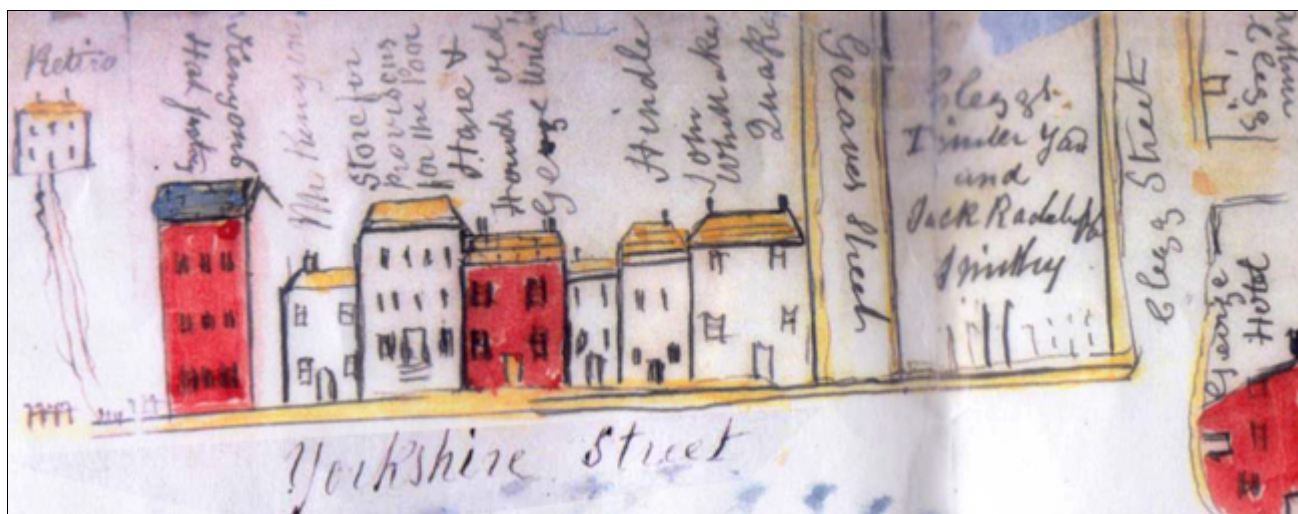 Retiro
Kenyons
Hat
Mr Kenyon
Store for
provisions
for the Poor
Hare &
Hounds
George
Hindle
John
Whittaker
Quaker
Greaves Street
Cleggs
Timber Yard
and
Jack Radcliffe
Smithy
Clegg Street
Clegg
George
Hotel
Yorkshire Street